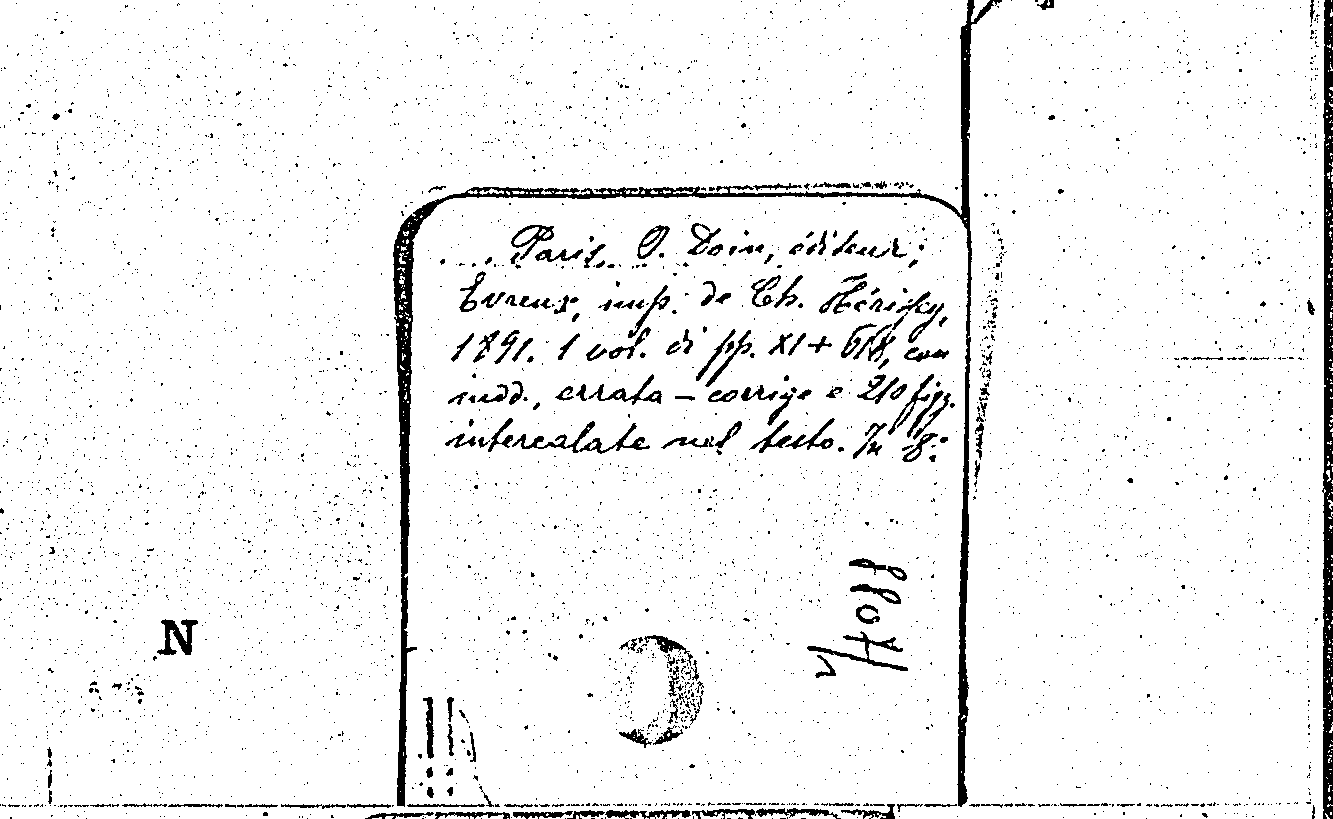 Paris, O. Doin, éditeur;
Evreux, imp. de Ch. Hérissey,
1891. 1 vol. di pp. XI + 618, con
indd., errata-corrige e 210 figg.
intercalate nel testo. In 8.°
N